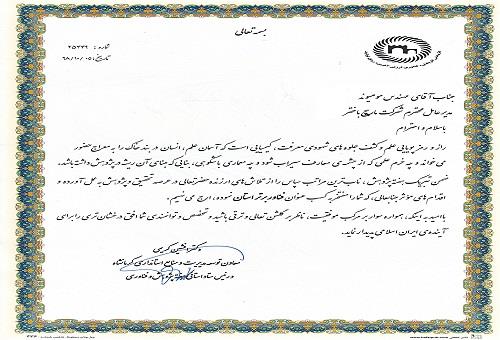 بسمه تعالی
شماره : ۲۵۴۴۶
تاریخ : ۶۸/۱۰/۰۵
جناب آقای مهندس مومیوند
مدیر عامل محترم شرکت مارپیچ باختر
با سلام و احترام
راز و رمز پویایی علم و کشف جلوه های شهودی معرفت، کیمیایی است که آسمان علم، انسان در بند خاک را به معراج حضور
می خواند و چه خرم علمی که از چشمه ی معارف سیراب شود و چه معماری باشکوهی، بنایی که بنای آن ریشه در پژوهش داشته باشد.
ضمن تبریک هفته پژوهش، ناب ترین مراتب سپاس را از تلاش های ارزنده حضرتعالی در عرصه تحقیق و پژوهش به عمل آورده و
اقدام های مؤثر جنابعالی، که شما را مفتخر به کسب عنوان فناور برتر استان نموده، ارج می نهیم.
با امید به اینکه، همواره سوار بر مرکب موفقیت، ناظر بر گلشن تعالی و ترقی باشید و تخصص و توانمندی شما افق درخشان تری را برای
آینده ی ایران اسلامی پدیدار نماید.
دکتر افشین کریمی
معاون توسعه مدیریت و منابع استانداری کرمانشاه
و رئیس ستاد استانی هفته پژوهش و فناوری